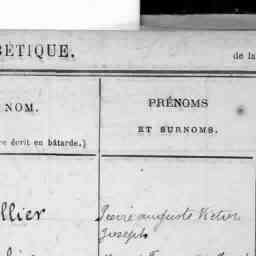 BÉTIQUE.
de la
NOM.
PRÉNOMS
ET SURNOMS.
re écrit en bâtarde.)
llier
Pierre auguste Victor
Joseph